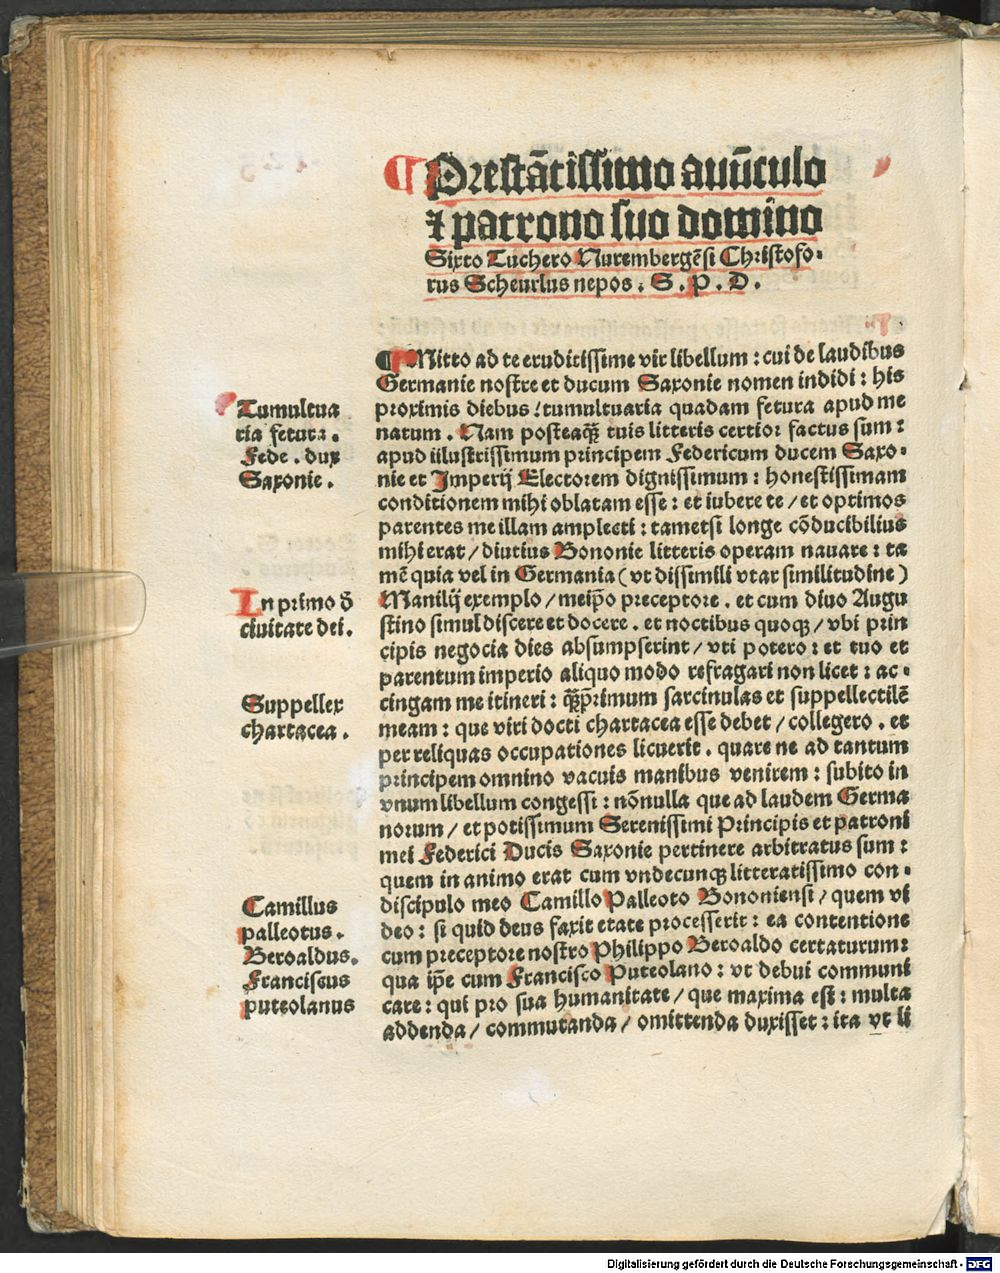 ¶ Prestātissimo auūculo
⁊ patrono suo domino
Sixto Tuchero Nurembergēsi Christofo⸗
rus Scheurlus nepos. S. P. D.
¶ Mitto ad te eruditissime vir libellum: cui de laudibus
Germanie nostre et ducum Saxonie nomen indidi: his
proximis diebus: tumultuaria quadam fetura apud me
natum. Nam posteaq̃ȝ tuis litteris certior factus sum:
apud illustrissimum principem Federicum ducem Saxo⸗
nie et Imperij Electorem dignissimum: honestissimam
conditionem mihi oblatam esse: et iubere te / et optimos
parentes me illam amplecti: tametsi longe cōducibilius
mihi erat / diutius Bononie litteris operam nauare: ta
mē quia vel in Germania (vt dissimili vtar similitudine)
Manilij exemplo / meip̄o preceptore. et cum diuo Augu
stino simul discere et docere. et noctibus quoqȝ / vbi prin
cipis negocia dies absumpserint / vti potero: et tuo et
parentum imperio aliquo modo refragari non licet: ac⸗
cingam me itineri: q̃ȝp̄rimum sarcinulas et suppellectilē
meam: que viri docti chartacea esse debet / collegero. et
per reliquas occupationes licuerit. quare ne ad tantum
principem omnino vacuis manibus venirem: subito in
vnum libellum congessi: nōnulla que ad laudem Germa
norum / et potissimum Serenissimi Principis et patroni
mei Federici Ducis Saxonie pertinere arbitratus sum:
quem in animo erat cum vndecunqȝ litteratissimo con⸗
discipulo meo Camillo Palleoto Bononiensi / quem vi
deo: si quid deus faxit etate processerit: ea contentione
cum preceptore nostro Philippo Beroaldo certaturum:
qua ip̄e cum Francisco Puteolano: vt debui communi
care: qui pro sua humanitate / que maxima est: multa
addenda / commutanda / omittenda duxisset: ita vt li
Tumultua
ria fetura.
Fede. dux
Saxonie.
In primo đ
ciuitate dei.
Suppellex
chartacea.
Camillus
palleotus.
Beroaldus.
Franciscus
puteolanus
Digitalisierung gefördert durch die Deutsche Forschungsgemeinschaft - DFG